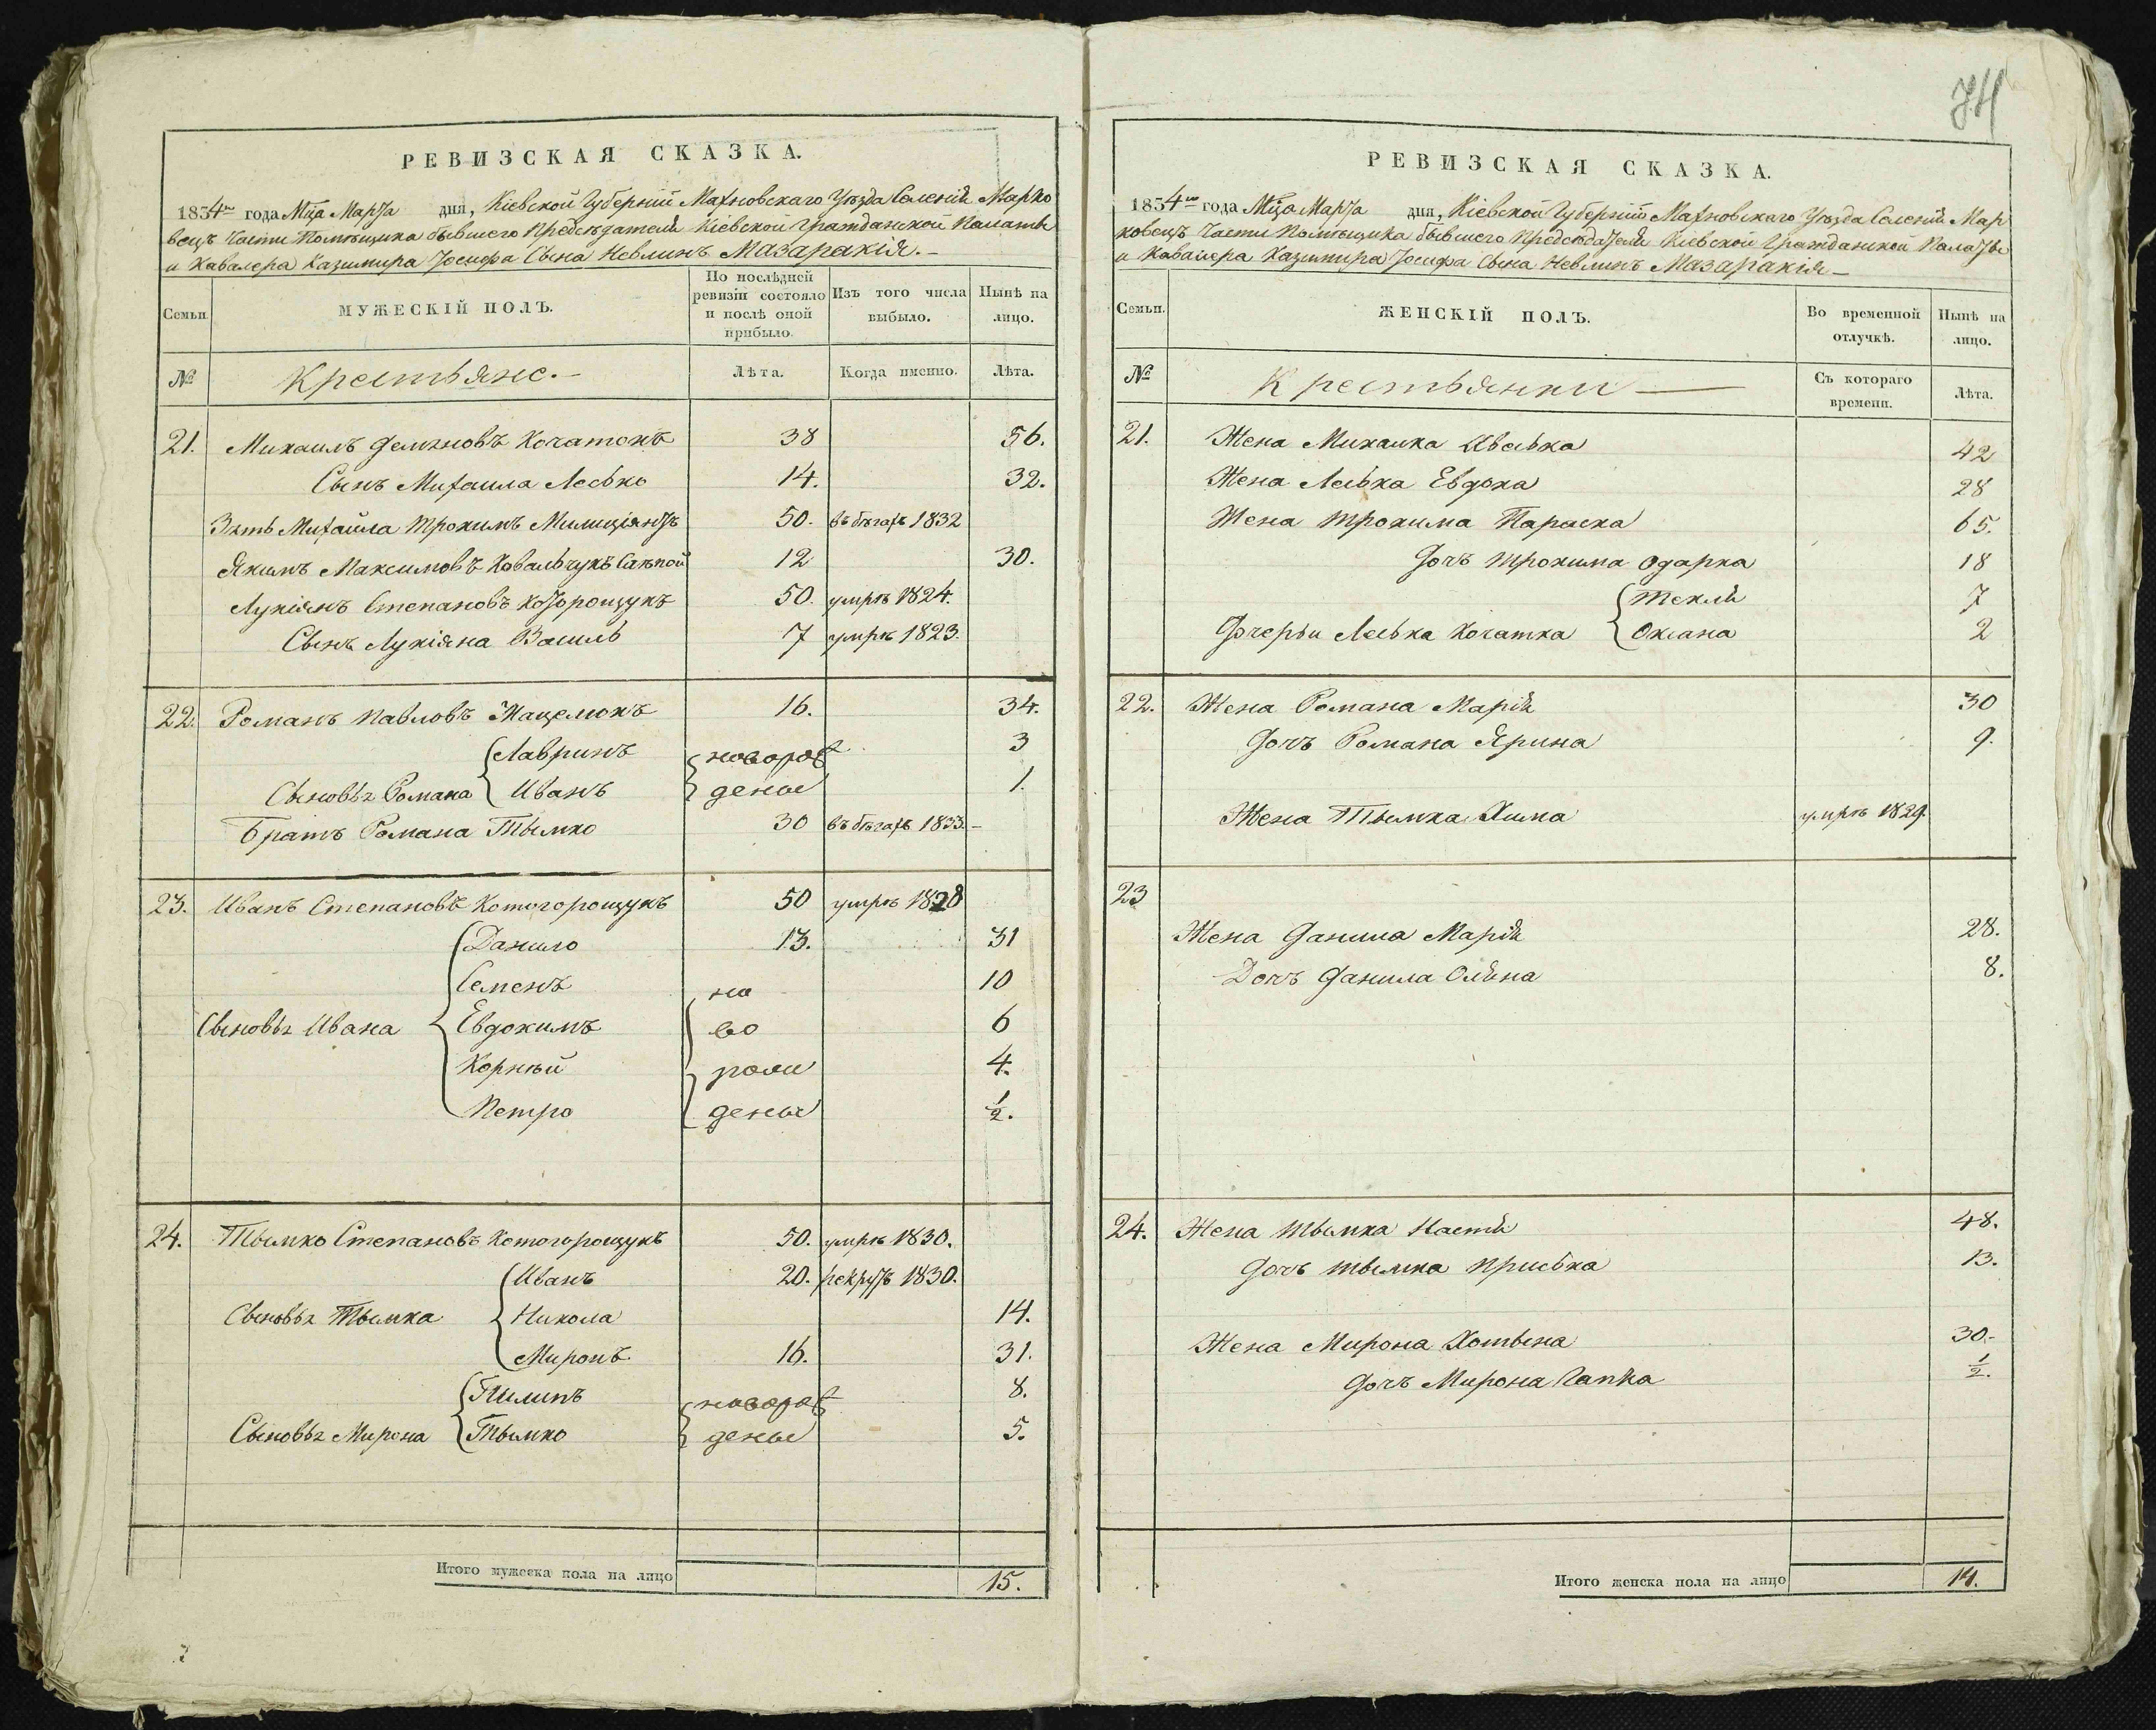 РЕВИЗСКАЯ СКАЗКА.
1834го года Мца Марта дня, Кіевской Губерніи Махновскаго Уѣзда Селенія Марко
вецъ Части Помѣщика бывшего Предсѣдателя Кіевской Гражданской Палаты
и Кавалера Казимира Іосифа Сына Невлинъ Мазаракія.-
Семьи.
МУЖЕСКІЙ ПОЛЪ.
По послѣдней
ревизіи состояло
и послѣ оной
прибыло.
Изъ того числа
выбыло.
Нынѣ на
лицо.
№
Крестьяне.-
Лѣта.
Когда именно.
Лѣта.
21. Михаилъ Демяновъ Качатокъ 38 56.
Сынъ Михаила Лесько 14. 32.
Зять Михайла Трохимъ Милиціянтъ 50. въ бѣгахъ 1832
Якимъ Максимовъ Ковальчукъ Слѣпой 12 30.
Лукіянъ Степановъ Которощукъ 50. умръ 1824.
Сынъ Лукіяна Василь 7 умръ 1823.
22. Романъ Павловъ Жацемокъ 16. 34.
Лавринъ новорож 3
Сыновья Романа Иванъ деные 1.
Братъ Романа Тымко 30 въ бѣгахъ 1833.-
23. Иванъ Степановъ Которогощукъ 50 умръ 1828
Данило 13. 31
Семенъ но 10
Сыновья Ивана Евдокимъ во 6
Корнѣй рож 4.
Петро деные 1/2.
24. Тымко Степановъ Которогощукъ 50. умръ 1830.
Иванъ 20. рекрутъ 1830.
Сыновья Тымка Никола 14.
Миронъ 16. 31.
Пилипъ новорож 8.
Сыновья Мирона Тымко деные 5.
Итого мужеска пола на лицо 15.
74
РЕВИЗСКАЯ СКАЗКА.
1834го года Мца Марта дня, Кіевской Губерніи Махновскаго Уѣзда Селенія Мар
ковецъ Части Помѣщика бывшего Предсѣдателя Кіевской Гражданской Палаты
и Кавалера Казимира Іосифа Сына Невлинъ Мазаракія-
Семьи.
ЖЕНСКІЙ ПОЛЪ.
Во временной
отлучкѣ.
Нынѣ на
лицо.
№
Крестьянки
Съ котораго
времени.
Лѣта.
21. Жена Михаила Ивська 42
Жена Леська Евдоха 28
Жена Трохима Параска 65.
Дочь Трохима Одарка 18
Текля 7
Дочеры Леська Качатка Оксана 2
22. Жена Романа Марія 30
Дочь Романа Ярина 9.
Жена Тымка Хима умръ 1829.
23
Жена Данила Марія 28.
Дочь Данила Олѣна 8.
24. Жена Тымка Настя 48.
Дочь Тымка Приська 13.
Жена Мирона Хотына 30.-
Дочь Мирона Гапка 1/2.
Итого женска пола на лицо 14.